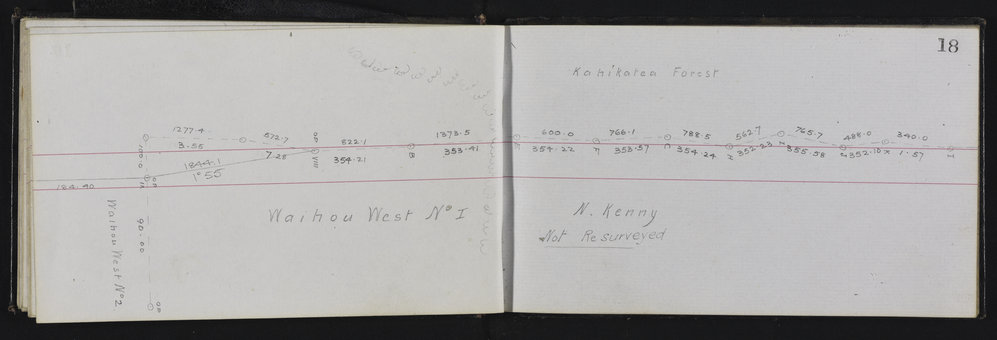 18
Kahikatea Forest
1277.4
572.7
822.1
1373.5
600.0
766.1
788.5
562.7
765.7
488.0
340.0
3.55
7.28
354.21
353.41
354.22
353.57
354.24
352.23
355.58
352.10
1.57
OP
VIII
B
1844.1
1°55
100.0
184.40
OP
90.00
OP
Waihou West No 2
Waihou West No I
N. Kenny
Not Resurveyed